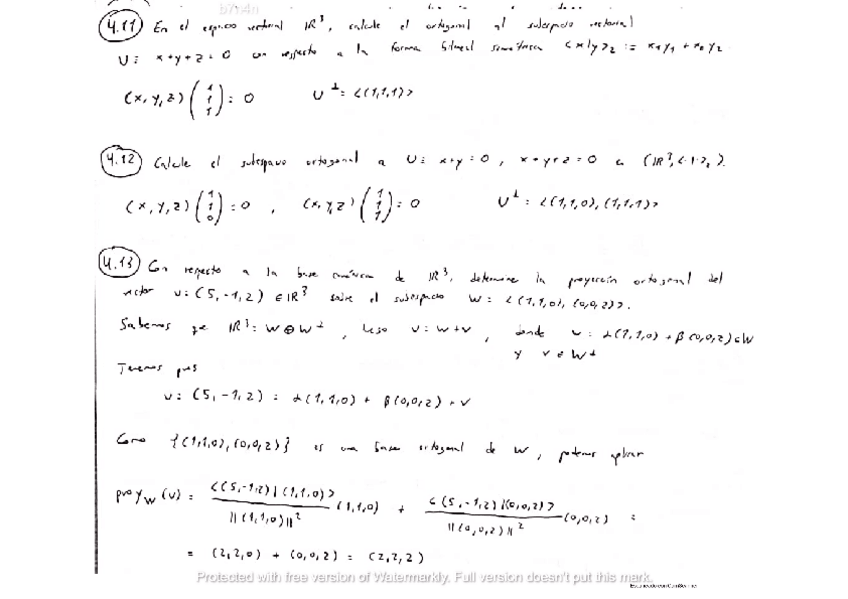 4.11 En el espacio vectorial IR³, calcule el ortogonal al subespacio vectorial
U ≡ x+y+z=0 con respecto a la forma bilineal simétrica
(x,y,z)(1 1 1)=0 U⊥=<(1,1,1)>
4.12 Calcule el subespacio ortogonal a U≡ x+y=0, x+y+z=0
(x,y,z)(1 1 0)=0, (x,y,z)(1 1 1)=0 U⊥=<(1,1,0),(1,1,1)>
4.13 Con respecto a la base canónica de IR³, determine la proyección ortogonal del
vector u=(5,-1,2)∈IR³ sobre el subespacio W=<(1,1,0),(0,0,2)>.
Sabemos que IR³=W⊕W⊥, luego u=w+v, donde w=α(1,1,0)+β(0,0,2)∈W
y v∈W⊥
Tenemos pues
u=(5,-1,2)=α(1,1,0)+β(0,0,2)+v
Como {(1,1,0),(0,0,2)} es una base ortogonal de W, podemos aplicar
proy_W(u)= <(5,-1,2)|(1,1,0)> / ||(1,1,0)||² (1,1,0) + <(5,-1,2)|(0,0,2)> / ||(0,0,2)||² (0,0,2) =
= (2,2,0)+(0,0,2)=(2,2,2)
Protected with free version of Watermarkly. Full version doesn't put this mark.
Escaneado con CamScanner